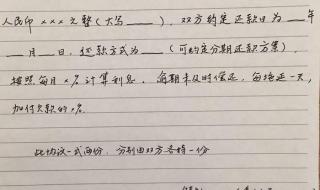 人民币×××元整(大写____),双方约定还款日为____年
____月____日,还款方式为____(可约定分期还款方案),
按照每月×%计算利息,逾期未及时偿还,每拖延一天,
加付欠款的×%.
此协议一式两份,分别由双方各持一份